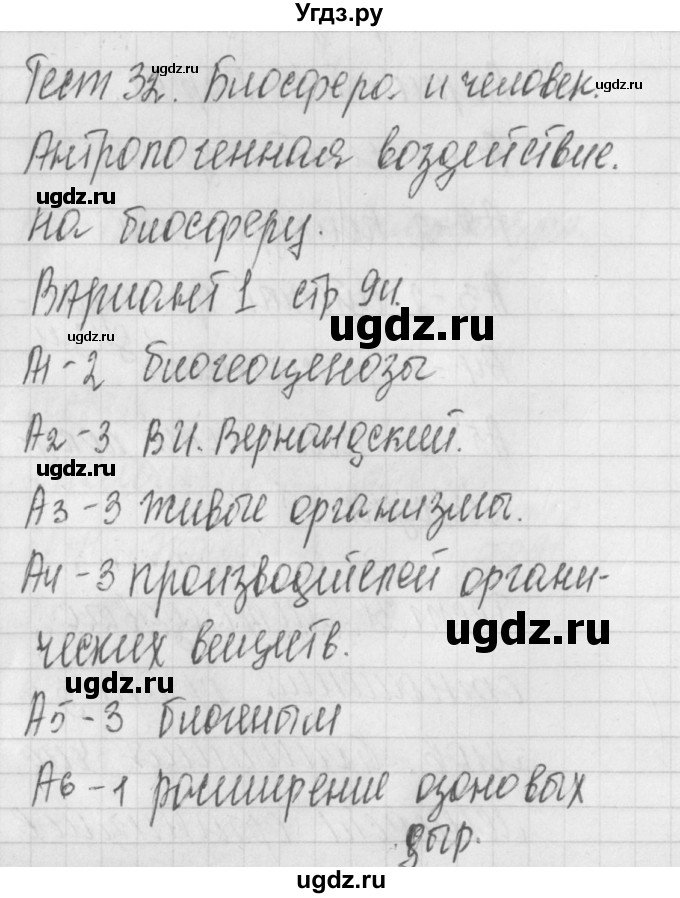 Угдз.ру
Тест 32. Биосфера и человек.
Антропогенная воздействие.
на биосферу.
Вариант 1 стр 94.
А1-2 биогеоценозы
А2-3 В.И. Вернандский.
А3-3 живые организмы.
А4-3 производителей органи-
ческих веществ.
А5-3 биогеным
А6-1 расширение озоновых
дыр.
ugdz.ru
ugdz.ru
ugdz.ru
ugdz.ru
ugdz.ru
ugdz.ru
ugdz.ru
ugdz.ru
ugdz.ru
ugdz.ru